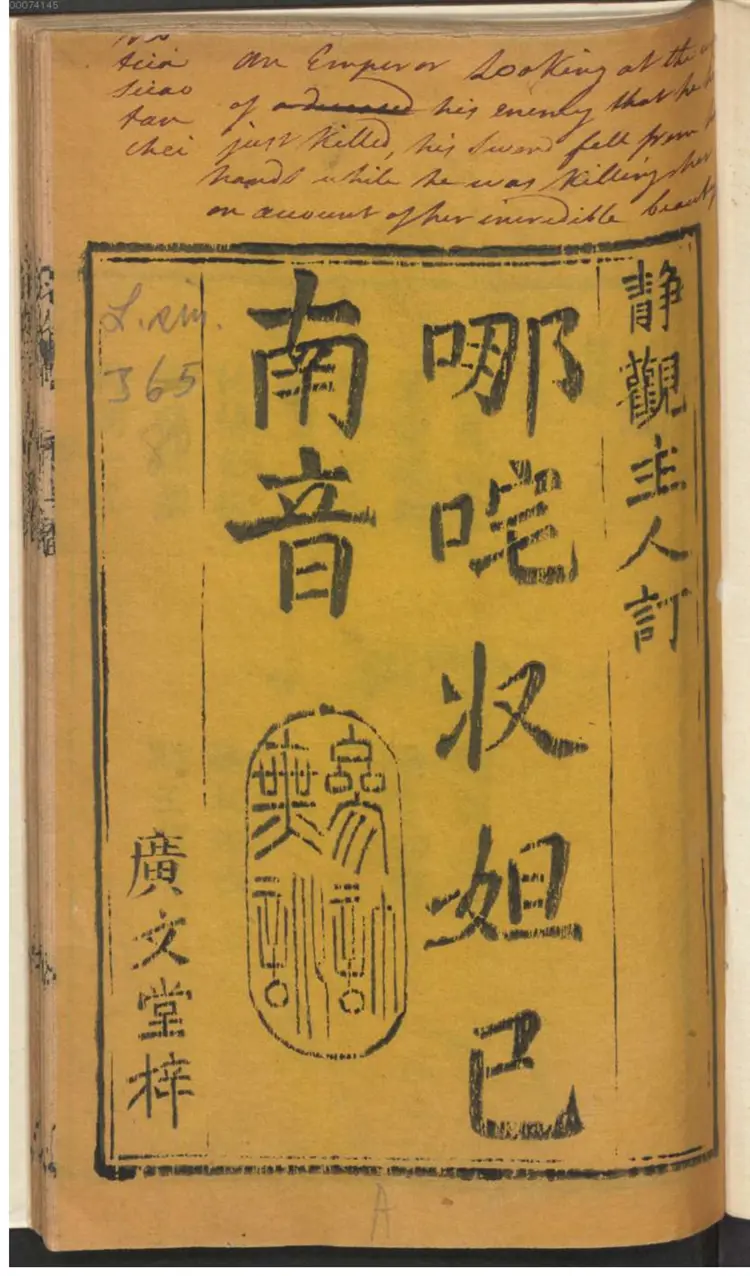 00074145
teia
siao
tan
chei
an Emperor Looking at the
of a deceased his enemy that he
just killed, his sword fell from
hands while he was killing her
on account of her incredible beauty
L. sin.
365
靜觀主人訂
哪咤収妲已
南音
廣文堂梓
A